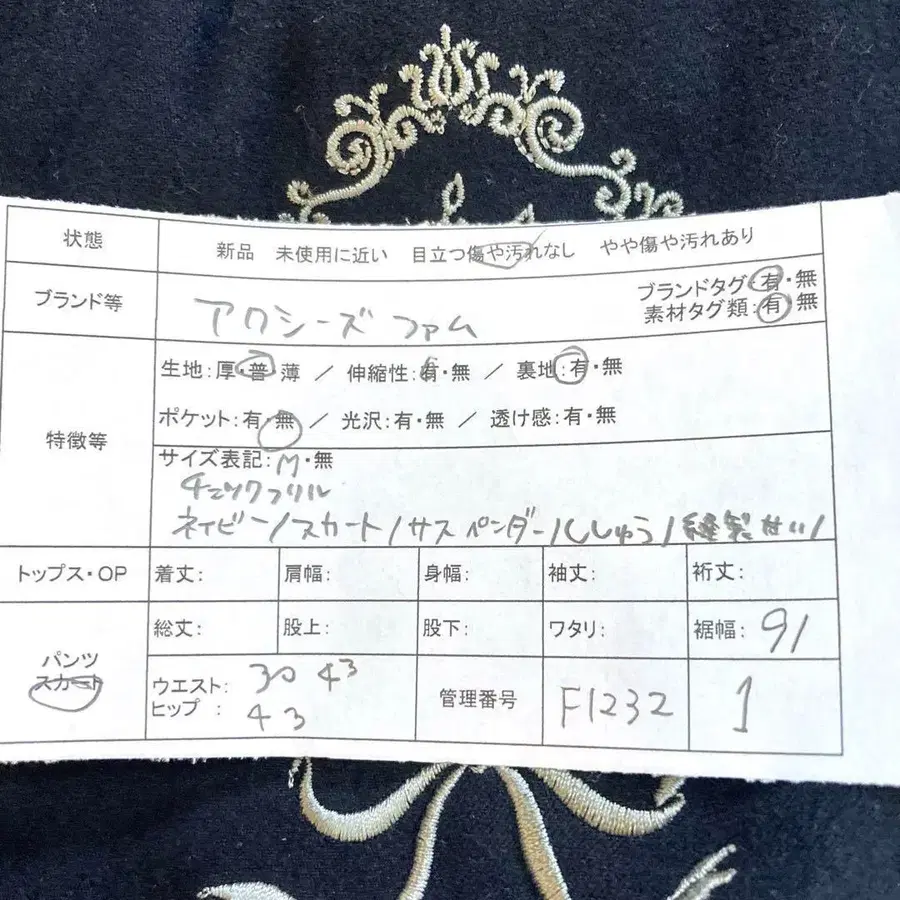 状態 新品 未使用に近い 目立つ傷や汚れなし やや傷や汚れあり
ブランド等 アクシーズ ファム ブランドタグ:有・無
素材タグ類:有・無
特徴等 生地:厚・普・薄 / 伸縮性:有・無 / 裏地:有・無
ポケット:有・無 / 光沢:有・無 / 透け感:有・無
サイズ表記:M・無
フリル
ネイビー/スカート/サスペンダー/ししゅう/縫製
トップス・OP 着丈: 肩幅: 身幅: 袖丈: 裄丈:
パンツ 総丈: 股上: 股下: ワタリ: 裾幅: 91
スカート ウエスト: 30 43 管理番号 F1232 1
ヒップ : 43